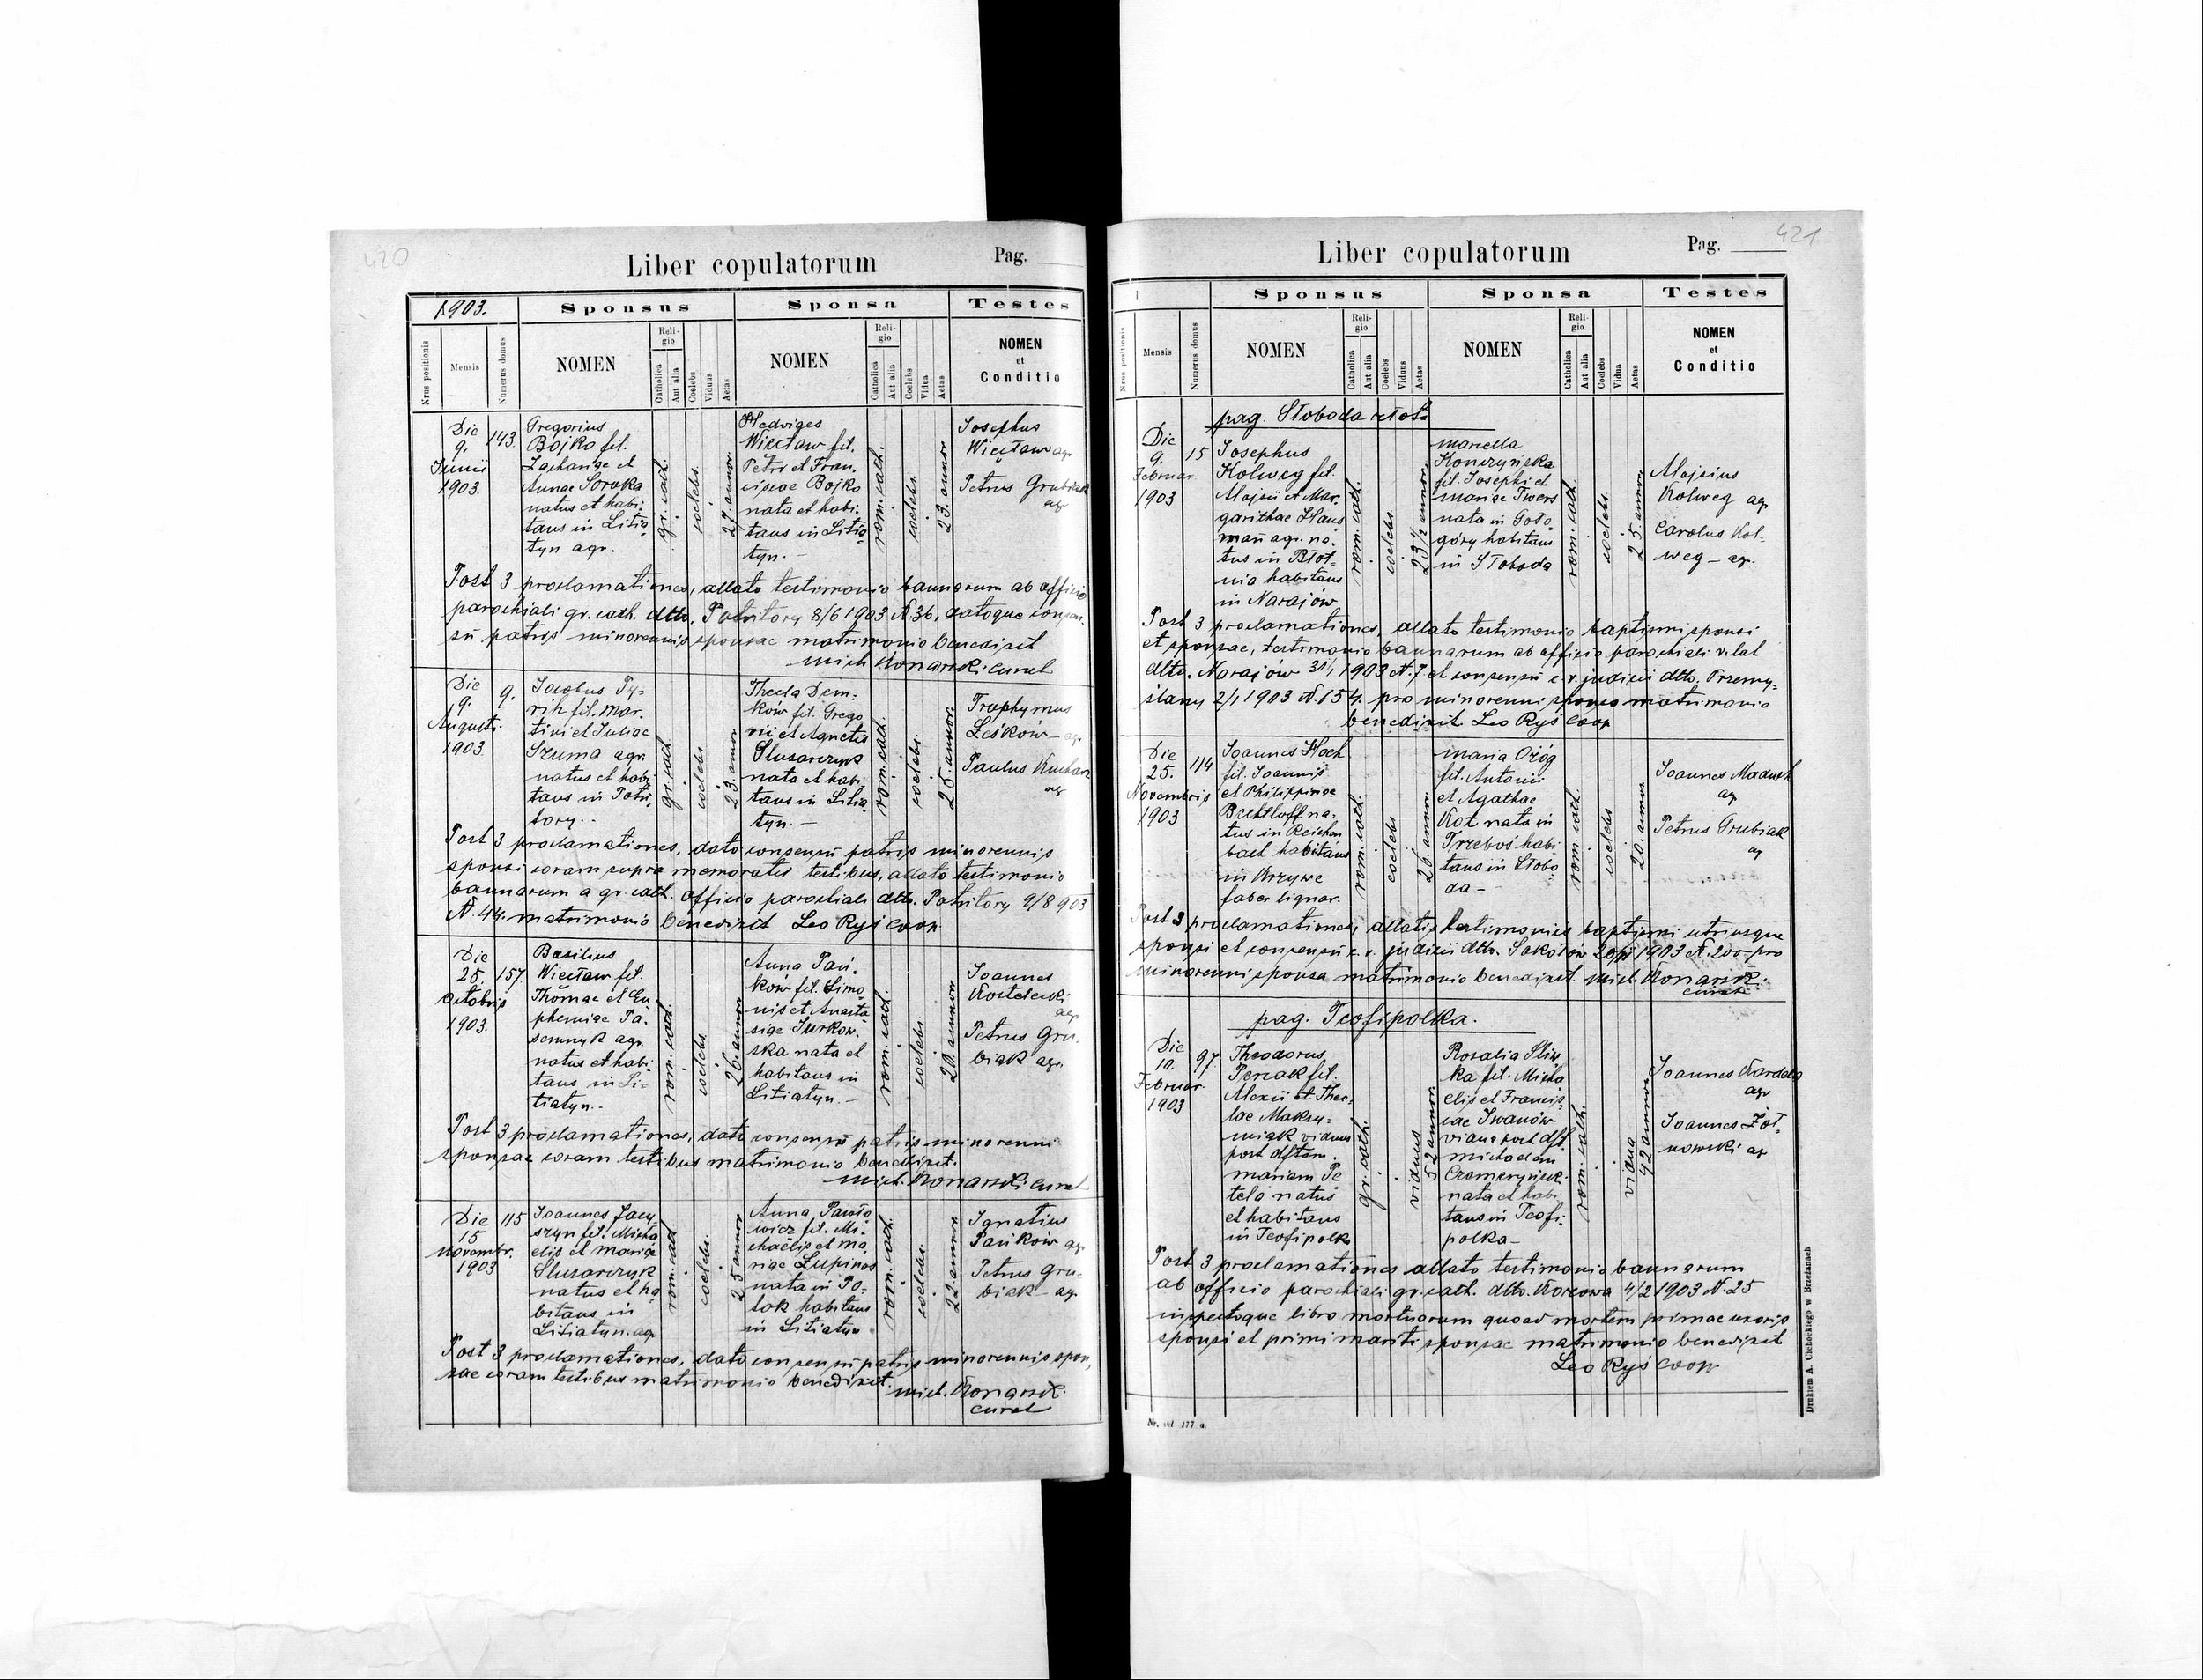 420
Liber copulatorum
Pag.
1903.
Sponsus
Sponsa
Testes
Nrus positionis
Mensis
Numerus domus
NOMEN
Religio
Catholica
Aut alia
Coelebs
Viduus
Aetas
NOMEN
Religio
Catholica
Aut alia
Coelebs
Vidua
Aetas
NOMEN
et
Conditio
Die
9.
Junii
1903.
143.
Gregorius
Bojko fil.
Zachariae et
Annae Soroka
natus et habi-
tans in Litia-
tyn agr.
gr. cath.
coelebs.
27. annor.
Hedviges
Więcław fil.
Petri et Fran-
ciscae Bojko
nata et habi-
tans in Litia-
tyn. -
rom. cath.
coelebs.
23. annor
Josephus
Więcław agr.
Petrus Grubiak
agr
Post 3 proclamationes, allato testimonio bannorum ab officio
parochiali gr. cath. dtto. Potutory 8/6 1903 N. 36, datoque consen-
sū patris minorennis sponsae matrimonio benedixit
Mich Konarski curat
Die
9.
Augusti.
1903.
9.
Jacobus Ty-
rih fil. Mar-
tini et Juliae
Szuma agr.
natus et habi-
tans in Potu-
tory. -
gr. cath.
coelebs.
23. annor
Thecla Dem-
ków fil. Grego
rii et Agnetis
Slusarczyk
nata et habi-
tans in Litia-
tyn. -
rom. cath.
coelebs.
25. annor.
Trophymus
Leśków - agr.
Paulus Kuchar
agr
Post 3 proclamationes, dato consensū patris minorennis
sponsi coram supra memoratis testibus, allato testimonio
bannorum a gr. cath. officio parochiali dtto. Potutory 9/8 903
N. 44. matrimonio benedixit Leo Ryś coop.
Die
25.
Octobris
1903.
157.
Basilius
Więcław fil.
Thomae et Eu-
phemiae Pa-
semnyk agr.
natus et habi-
tans in Li-
tiatyn. -
rom. cath.
coelebs
26. annor
Anna Pań-
ków fil. Simo
nis et Anasta
siae Jurkow-
ska nata et
habitans in
Litiatyn. -
rom. cath.
coelebs
20. annor
Joannes
Kostelecki
agr.
Petrus Gru-
biak agr.
Post 3 proclamationes, dato consensū patris minorennis
sponsae coram testibus matrimonio benedixit.
Mich. Konarski curat
Die
15
Novembr.
1903
115
Joannes Jacy-
szyn fil. Micha
elis et Mariae
Slusarczyk
natus et ha
bitans in
Litiatyn. agr
rom. cath.
coelebs.
25 annor
Anna Pawło
wicz fil. Mi-
chaëlis et Ma
riae Lupinos
nata in Po-
tok habitans
in Litiatyn
rom. cath.
coelebs.
22. annor
Ignatius
Pańków agr
Petrus Gru-
biak - agr.
Post 3 proclamationes, dato consensū patris minorennis spon-
sae coram testibus matrimonio benedixit. Mich. Konarski
curat
421
Liber copulatorum
Pag.
Sponsus
Sponsa
Testes
Nrus positionis
Mensis
Numerus domus
NOMEN
Religio
Catholica
Aut alia
Coelebs
Viduus
Aetas
NOMEN
Religio
Catholica
Aut alia
Coelebs
Vidua
Aetas
NOMEN
et
Conditio
pag. Słoboda złota
Die
9.
Februar
1903
15
Josephus
Kolweg fil.
Alojsii et Mar-
garithae Haus
mañ agr. na-
tus in Błot-
nia habitans
in Narajów
rom. cath.
coelebs.
23 1/2 annor.
Marcella
Konczyńska
fil. Josephi et
Mariae Twers
nata in Goło-
góry habitans
in Słoboda
rom. cath.
coelebs.
25. annor
Alojsius
Kolweg agr
Carolus Kol-
weg - agr.
Post 3 proclamationes, allato testimonio baptismi sponsi
et sponsae, testimonio bannorum ab officio parochiali r. lat
dtto. Narajów 31/1 1903 N. 7 et consensū c. r. judicii dtto. Przemy-
ślany 2/1 1903 N. 154. pro minorenni sponso matrimonio
benedixit. Leo Ryś coop
Die
25.
Novembris
1903
114
Joannes Hoch
fil. Joannis
et Philippinae
Bechtloff na-
tus in Reichen
bach habitans
in Krzywe
faber lignar.
rom. cath.
coelebs
26. annor.
Maria Ożóg
fil. Antonii
et Agathae
Kot nata in
Trzeboś habi
tans in Słobo
da -
rom. cath.
coelebs
20. annor
Joannes Maduch
agr
Petrus Grubiak
agr
Post 3 proclamationes, allatis testimoniis baptismi utriusque
sponsi et consensū c. r. judicii dtto. Sokołów N. 200 pro
minorenni sponsa matrimonio benedixit. Mich. Konarski
curat
pag. Teofipolka.
Die
10.
Februar.
1903
97
Theodorus
Percak fil.
Alexii et Thec-
lae Maksy-
miak viduus
post dfctam.
Mariam Pe
tela natus
et habitans
in Teofipolka
gr. cath.
viduus
52 annor.
Rosalia Sliw
ka fil. Micha
elis et Francis-
cae Iwanów
vidua post dfct.
Michaelem
nata et habi-
tans in Teofi-
polka -
rom. cath.
vidua
42 annor
Joannes Kardasz
agr
Joannes Żoł-
nowski agr
Post 3 proclamationes allato testimonio bannorum
ab officio parochiali gr. cath. dtto. Korzowa 4/2 1903 N. 25
inspectoque libro mortuorum quoad mortem primae uxoris
sponsi et primi mariti sponsae matrimonio benedixit
Leo Ryś coop
Drukiem A. Cichockiego w Brzeżanach